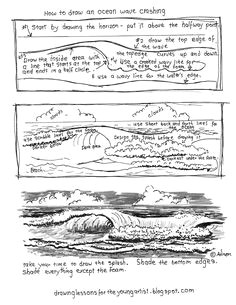 How to draw an ocean wave crashing
#1 Start by drawing the horizon - put it above the halfway point
#2 draw the top edge of
the wave
the top edge curves up and down.
Draw the inside area with
a line that starts at the top
and ends in a half circle.
use a curved wavy line for
the edge of the foam
use a wavy line for the water's edge.
clouds
clouds
use short back and forth lines for
Design the splash before drawing it
Beach
take your time to draw the splash. Shade the bottom edges.
Shade everything except the foam.
drawinglessonsfortheyoungartist.blogspot.com